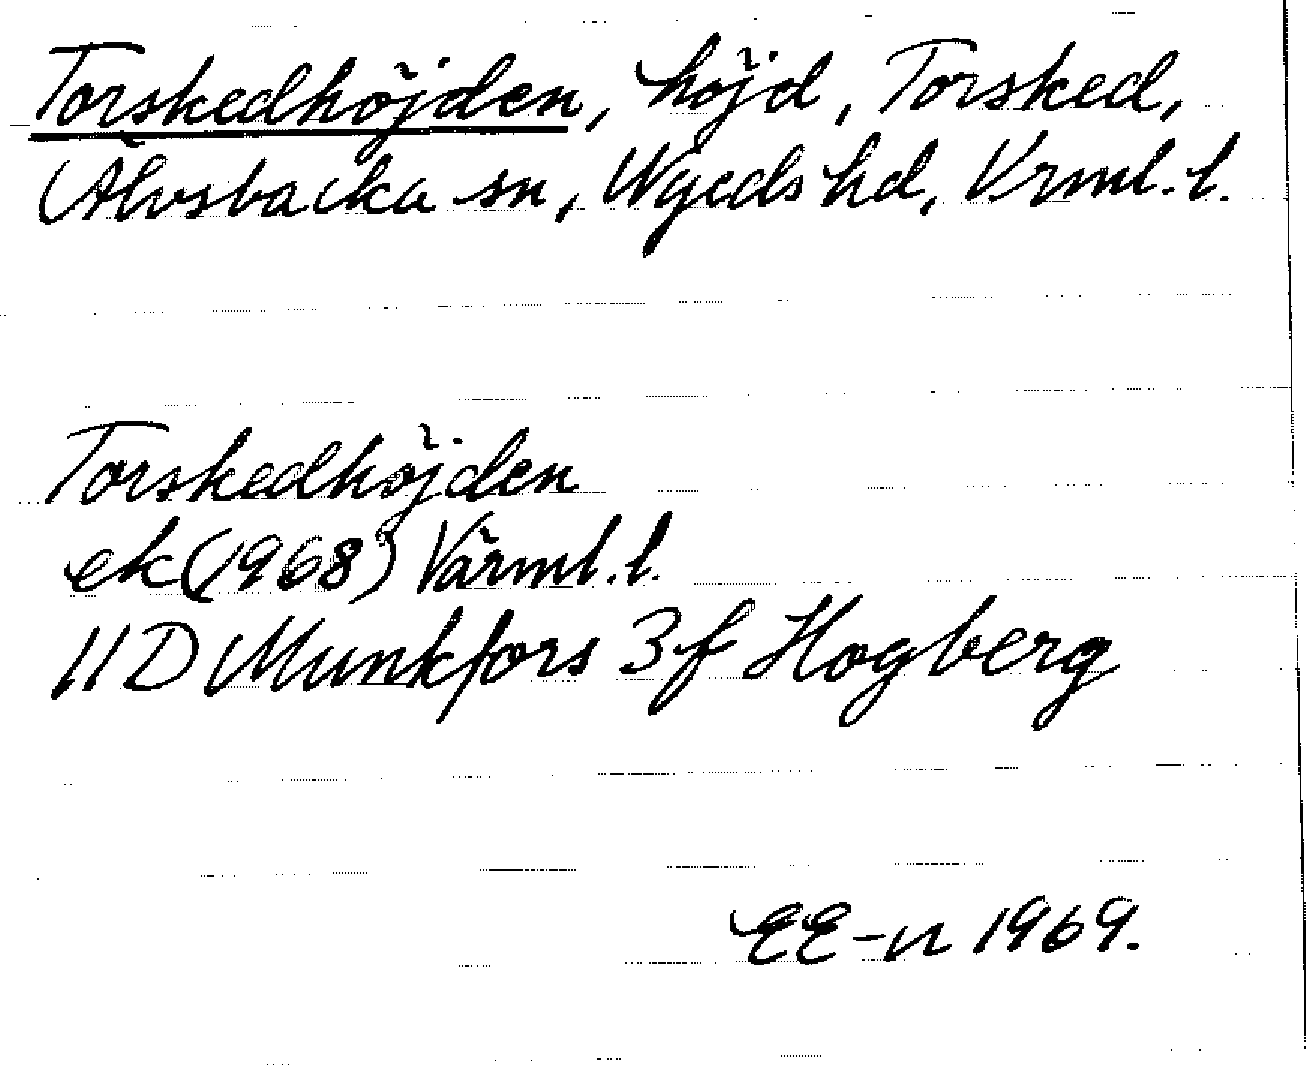 Torskedhöjden, höjd, Torsked,
Älvsbacka sn, Nyeds hd, Vrml. l.
Torskedhöjden
ek (1968) Värml. l.
11 D Munkfors 3 f Hogberg
EE-n 1969.